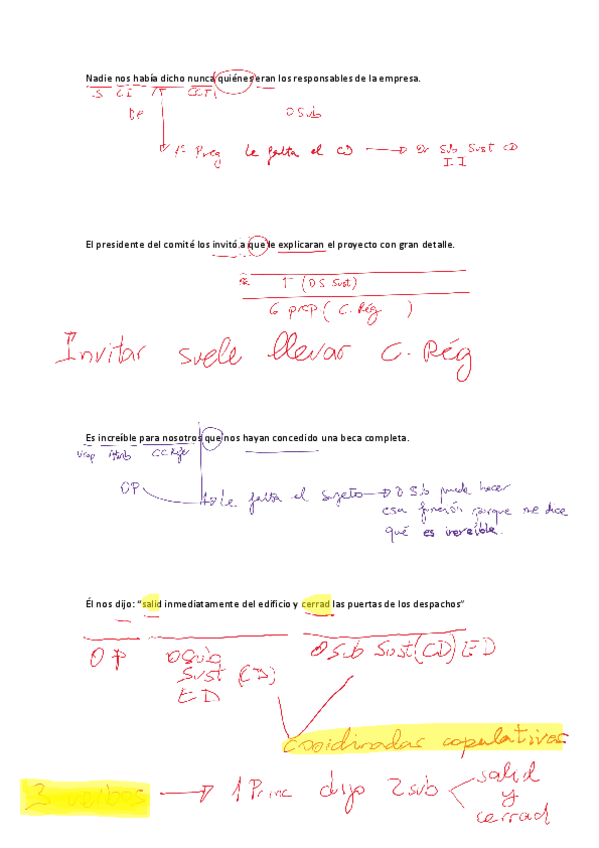 Nadie nos había dicho nunca quiénes eran los responsables de la empresa.
S CI CCT
OP O Sub
1ª Preg le falta el CD Or Sub Sust CD
I.I
El presidente del comité los invitó a que le explicaran el proyecto con gran detalle.
T (OS Sust)
G prep (C. Rég )
Invitar suele llevar C. Rég
Es increíble para nosotros que nos hayan concedido una beca completa.
Vcop Atrib
OP le falta el sujeto O Sub puede hacer
esa función porque me dice
qué es increíble.
Él nos dijo: “salid inmediatamente del edificio y cerrad las puertas de los despachos”
OP O Sub O Sub Sust (CD) ED
Sust (CD)
ED
coordinadas copulativas
3 verbos 1 Princ dijo 2 sub salid
y
cerrad